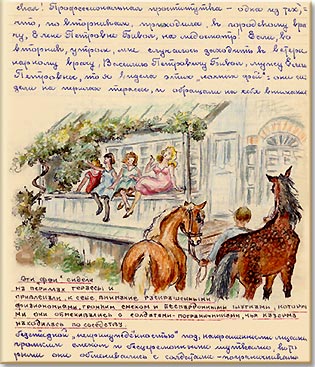 сказ! Профессиональная проституттка - одна из тех,
что по вторникам, приходила в городскому вра-
чу, Елене Петровне Бивой, на медосмотр! Если, во
вторник, утром, мне случалось заходить к ветери-
нарному врачу, Василию Петровичу Бивому, мужу Елены
Петровны, то я видела этих "лагных фей": они си-
дели на перилах террасы, и обращали на себя внимание
Эти "феи" сидели
на перилах террасы и
привлекали к себе внимание раскрашенными
физиономиями, громким смехом и беспардонными шутками, которы-
ми они обменивались с солдатами-пограничниками, чья казарма
находилась по соседству.
безстыдной "нецензурностью" поз, накрашенными лицами,
громким смехом и бесцеремонными шутками, кото-
рыми они обменивались с солдатами-пограничниками